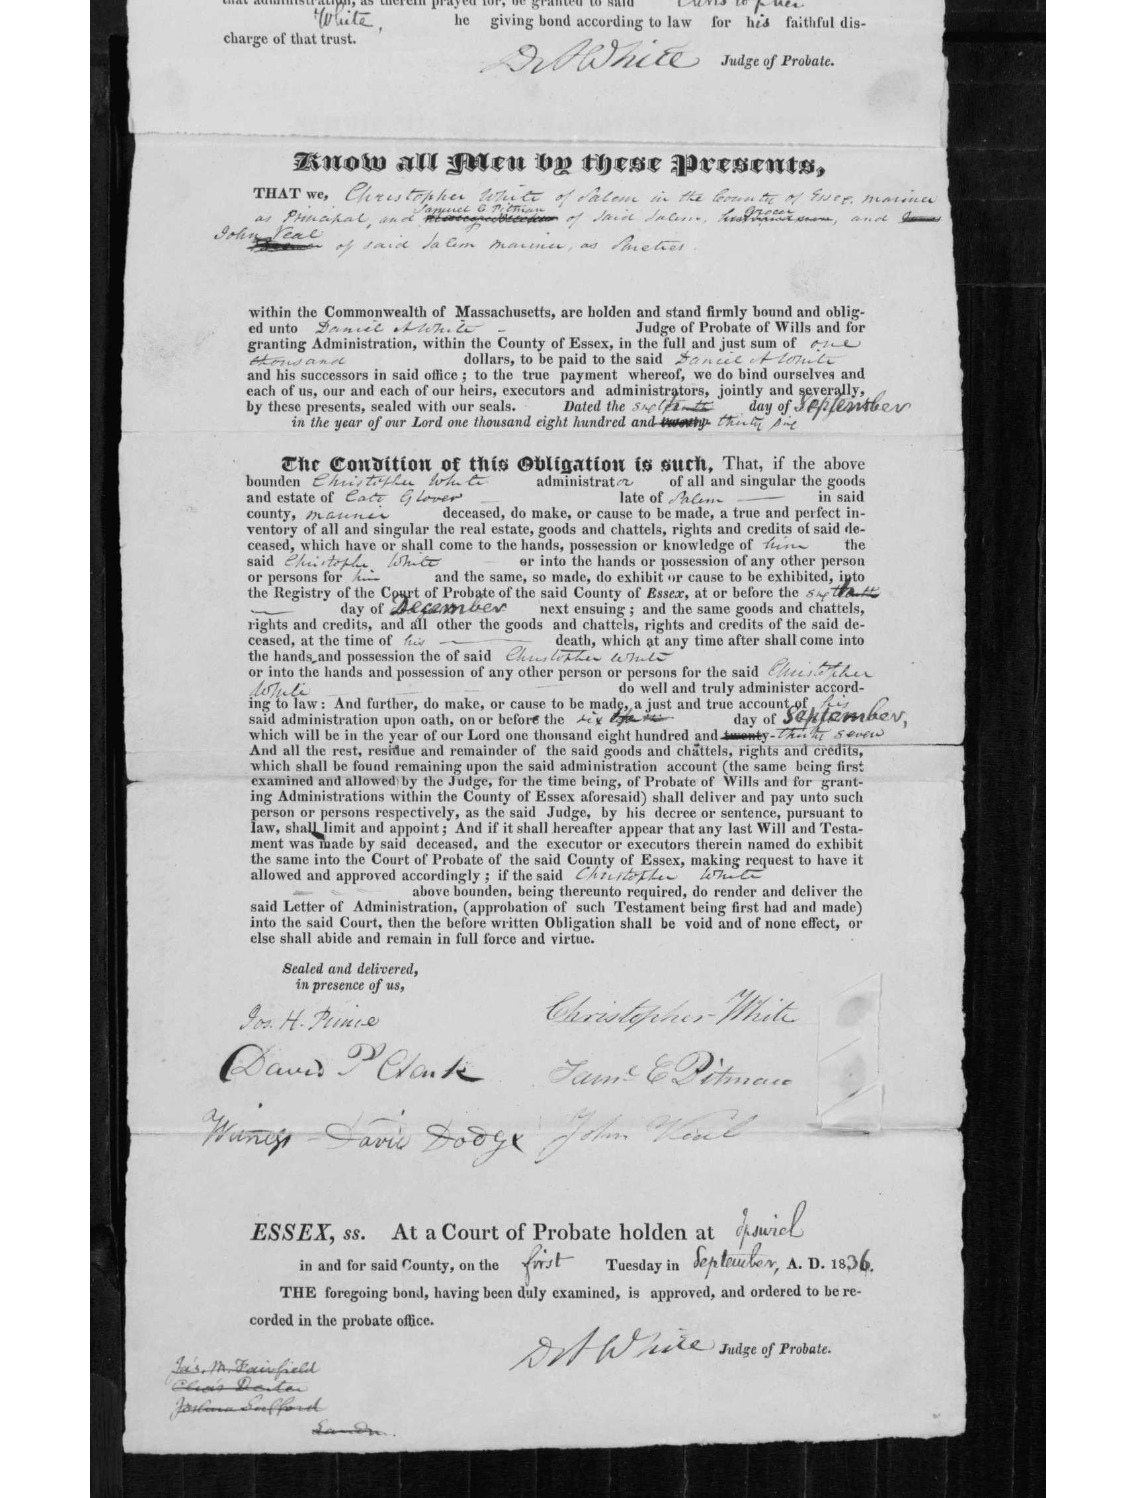 that administration, as therein prayed for, be granted to said Christopher
White, he giving bond according to law for his faithful dis-
charge of that trust.
D A White Judge of Probate.
Know all Men by these Presents,
THAT we, Christopher White of Salem in the County of Essex, mariner
as Principal, and Samuel E Pitman of said Salem, Grocer, and
John Neal of said Salem mariner, as Sureties
within the Commonwealth of Massachusetts, are holden and stand firmly bound and oblig-
ed unto Daniel A White - Judge of Probate of Wills and for
granting Administration, within the County of Essex, in the full and just sum of one
thousand dollars, to be paid to the said Daniel A White
and his successors in said office; to the true payment whereof, we do bind ourselves and
each of us, our and each of our heirs, executors and administrators, jointly and severally,
by these presents, sealed with our seals. Dated the day of September
in the year of our Lord one thousand eight hundred and twenty thirty six
The Condition of this Obligation is such, That, if the above
bounden Christopher White administrator of all and singular the goods
and estate of Cato Glover late of Salem in said
county, mariner deceased, do make, or cause to be made, a true and perfect in-
ventory of all and singular the real estate, goods and chattels, rights and credits of said de-
ceased, which have or shall come to the hands, possession or knowledge of him the
said Christopher White or into the hands or possession of any other person
or persons for him and the same, so made, do exhibit or cause to be exhibited, into
the Registry of the Court of Probate of the said County of Essex, at or before the
day of December next ensuing; and the same goods and chattels,
rights and credits, and all other the goods and chattels, rights and credits of the said de-
ceased, at the time of his death, which at any time after shall come into
the hands and possession the of said Christopher White
or into the hands and possession of any other person or persons for the said Christopher
White do well and truly administer accord-
ing to law: And further, do make, or cause to be made, a just and true account of his
said administration upon oath, on or before the six day of September,
which will be in the year of our Lord one thousand eight hundred and twenty- thirty seven
And all the rest, residue and remainder of the said goods and chattels, rights and credits,
which shall be found remaining upon the said administration account (the same being first
examined and allowed by the Judge, for the time being, of Probate of Wills and for grant-
ing Administrations within the County of Essex aforesaid) shall deliver and pay unto such
person or persons respectively, as the said Judge, by his decree or sentence, pursuant to
law, shall limit and appoint; And if it shall hereafter appear that any last Will and Testa-
ment was made by said deceased, and the executor or executors therein named do exhibit
the same into the Court of Probate of the said County of Essex, making request to have it
allowed and approved accordingly; if the said Christopher White
above bounden, being thereunto required, do render and deliver the
said Letter of Administration, (approbation of such Testament being first had and made)
into the said Court, then the before written Obligation shall be void and of none effect, or
else shall abide and remain in full force and virtue.
Sealed and delivered,
in presence of us,
Jos. H. Prince Christopher White
David P Clark Saml E Pitman
Witness David Dodge John Neal
ESSEX, ss. At a Court of Probate holden at Ipswich
in and for said County, on the first Tuesday in September, A. D. 1836.
THE foregoing bond, having been duly examined, is approved, and ordered to be re-
corded in the probate office.
D A White Judge of Probate.
Jas. M. Fairfield
Joshua Safford